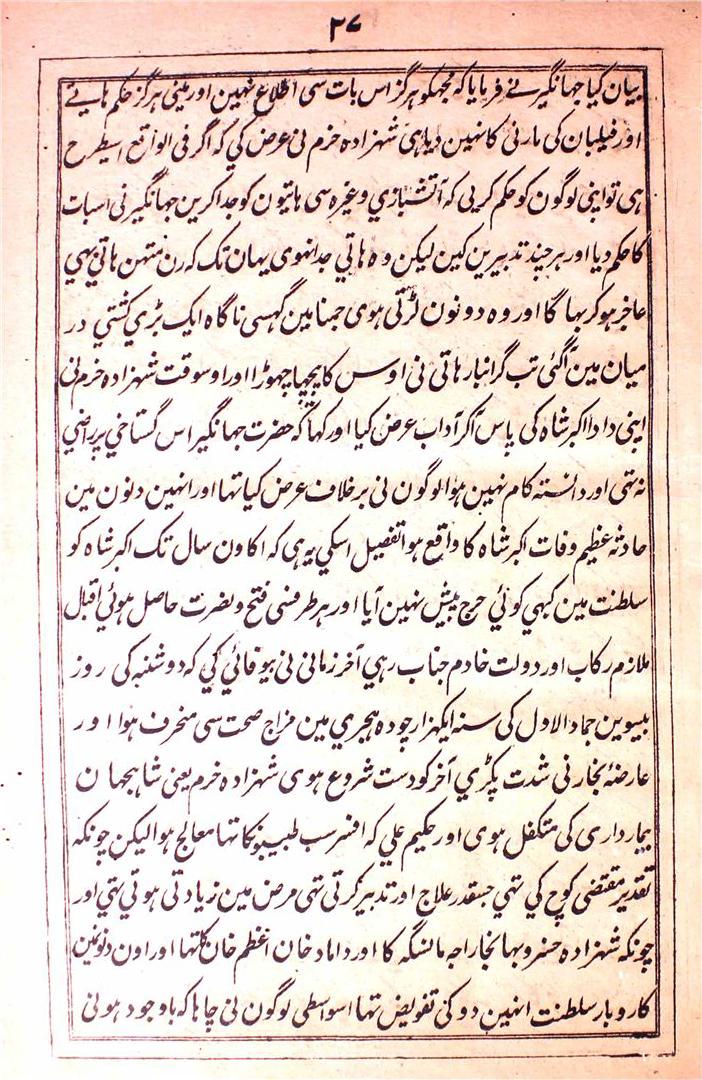 ۲۷
بیان کیا جہانگیر نے فرمایا کہ مجہکو ہرگز اس بات سی اطلاع نہین اور مینی ہرگز حکم ہاتے
اور فیلبان کی مارنی کا نہین دیا ہی شہزادہ خرم نی عرض کی کہ اگر فی الواقع اسیطرح
ہی تو اپنی لوگون کو حکم کریی کہ آتشبازی وغیرہ سی ہاتیون کو جدا کرین جہانگیر نی اسبات
کا حکم دیا اور ہر چند تدبیرین کین لیکن وہ ہاتی جدا نہوی یہان تک کہ رن متہن ہاتی بہی
عاجز ہو کر بہا گا اور وہ دونون لڑتی ہوی جمنا مین گہسی ناگاہ ایک بڑی کشتی در
میان مین آگئی تب گرانبار ہاتی نی اوس کا پیچہا چہوڑا اور اوسوقت شہزادہ خرم نی
اپنی دادا اکبر شاہ کی پاس آکر آداب عرض کیا اور کہا کہ حضرت جہانگیر اس گستاخی پر راضی
نہ تہی اور دانستہ کام نہین ہوا لوگون نی برخلاف عرض کیا تہا اور انہین دنون مین
حادثہ عظیم وفات اکبر شاہ کا واقع ہوا تفصیل اسکی یہ ہی کہ اکاون سال تک اکبر شاہ کو
سلطنت مین کبہی کوئی حرج پیش نہین آیا اور ہر طرفسی فتح و نصرت حاصل ہوئی اقبال
ملازم رکاب اور دولت خادم جناب رہی آخر زمانی نی بیوفائی کی کہ دوشنبہ کی روز
بیسوین جماد الاول کی سنہ ایکہزار چودہ ہجری مین مزاج صحت سی منحرف ہوا اور
عارضۂ بخار نی شدت پکڑی آخر کو دست شروع ہوی شہزادہ خرم یعنی شاہجہان
بیمارداری کی متکفل ہوی اور حکیم علی کہ افسر سب طبیبونکا تہا معالج ہوا لیکن چونکہ
تقدیر مقتضی کوچ کی تہی جسقدر علاج اور تدبیر کرتی تہی مرض مین زیادتی ہوتی تہی اور
چونکہ شہزادہ خسرو بہانجا راجہ مانسنگہ کا اور داماد خان اعظم خان کا تہا اور اون دنونمین
کاروبار سلطنت انہین دو کی تفویض تہا اسواسطی لوگون نی چاہا کہ باوجود ہونی